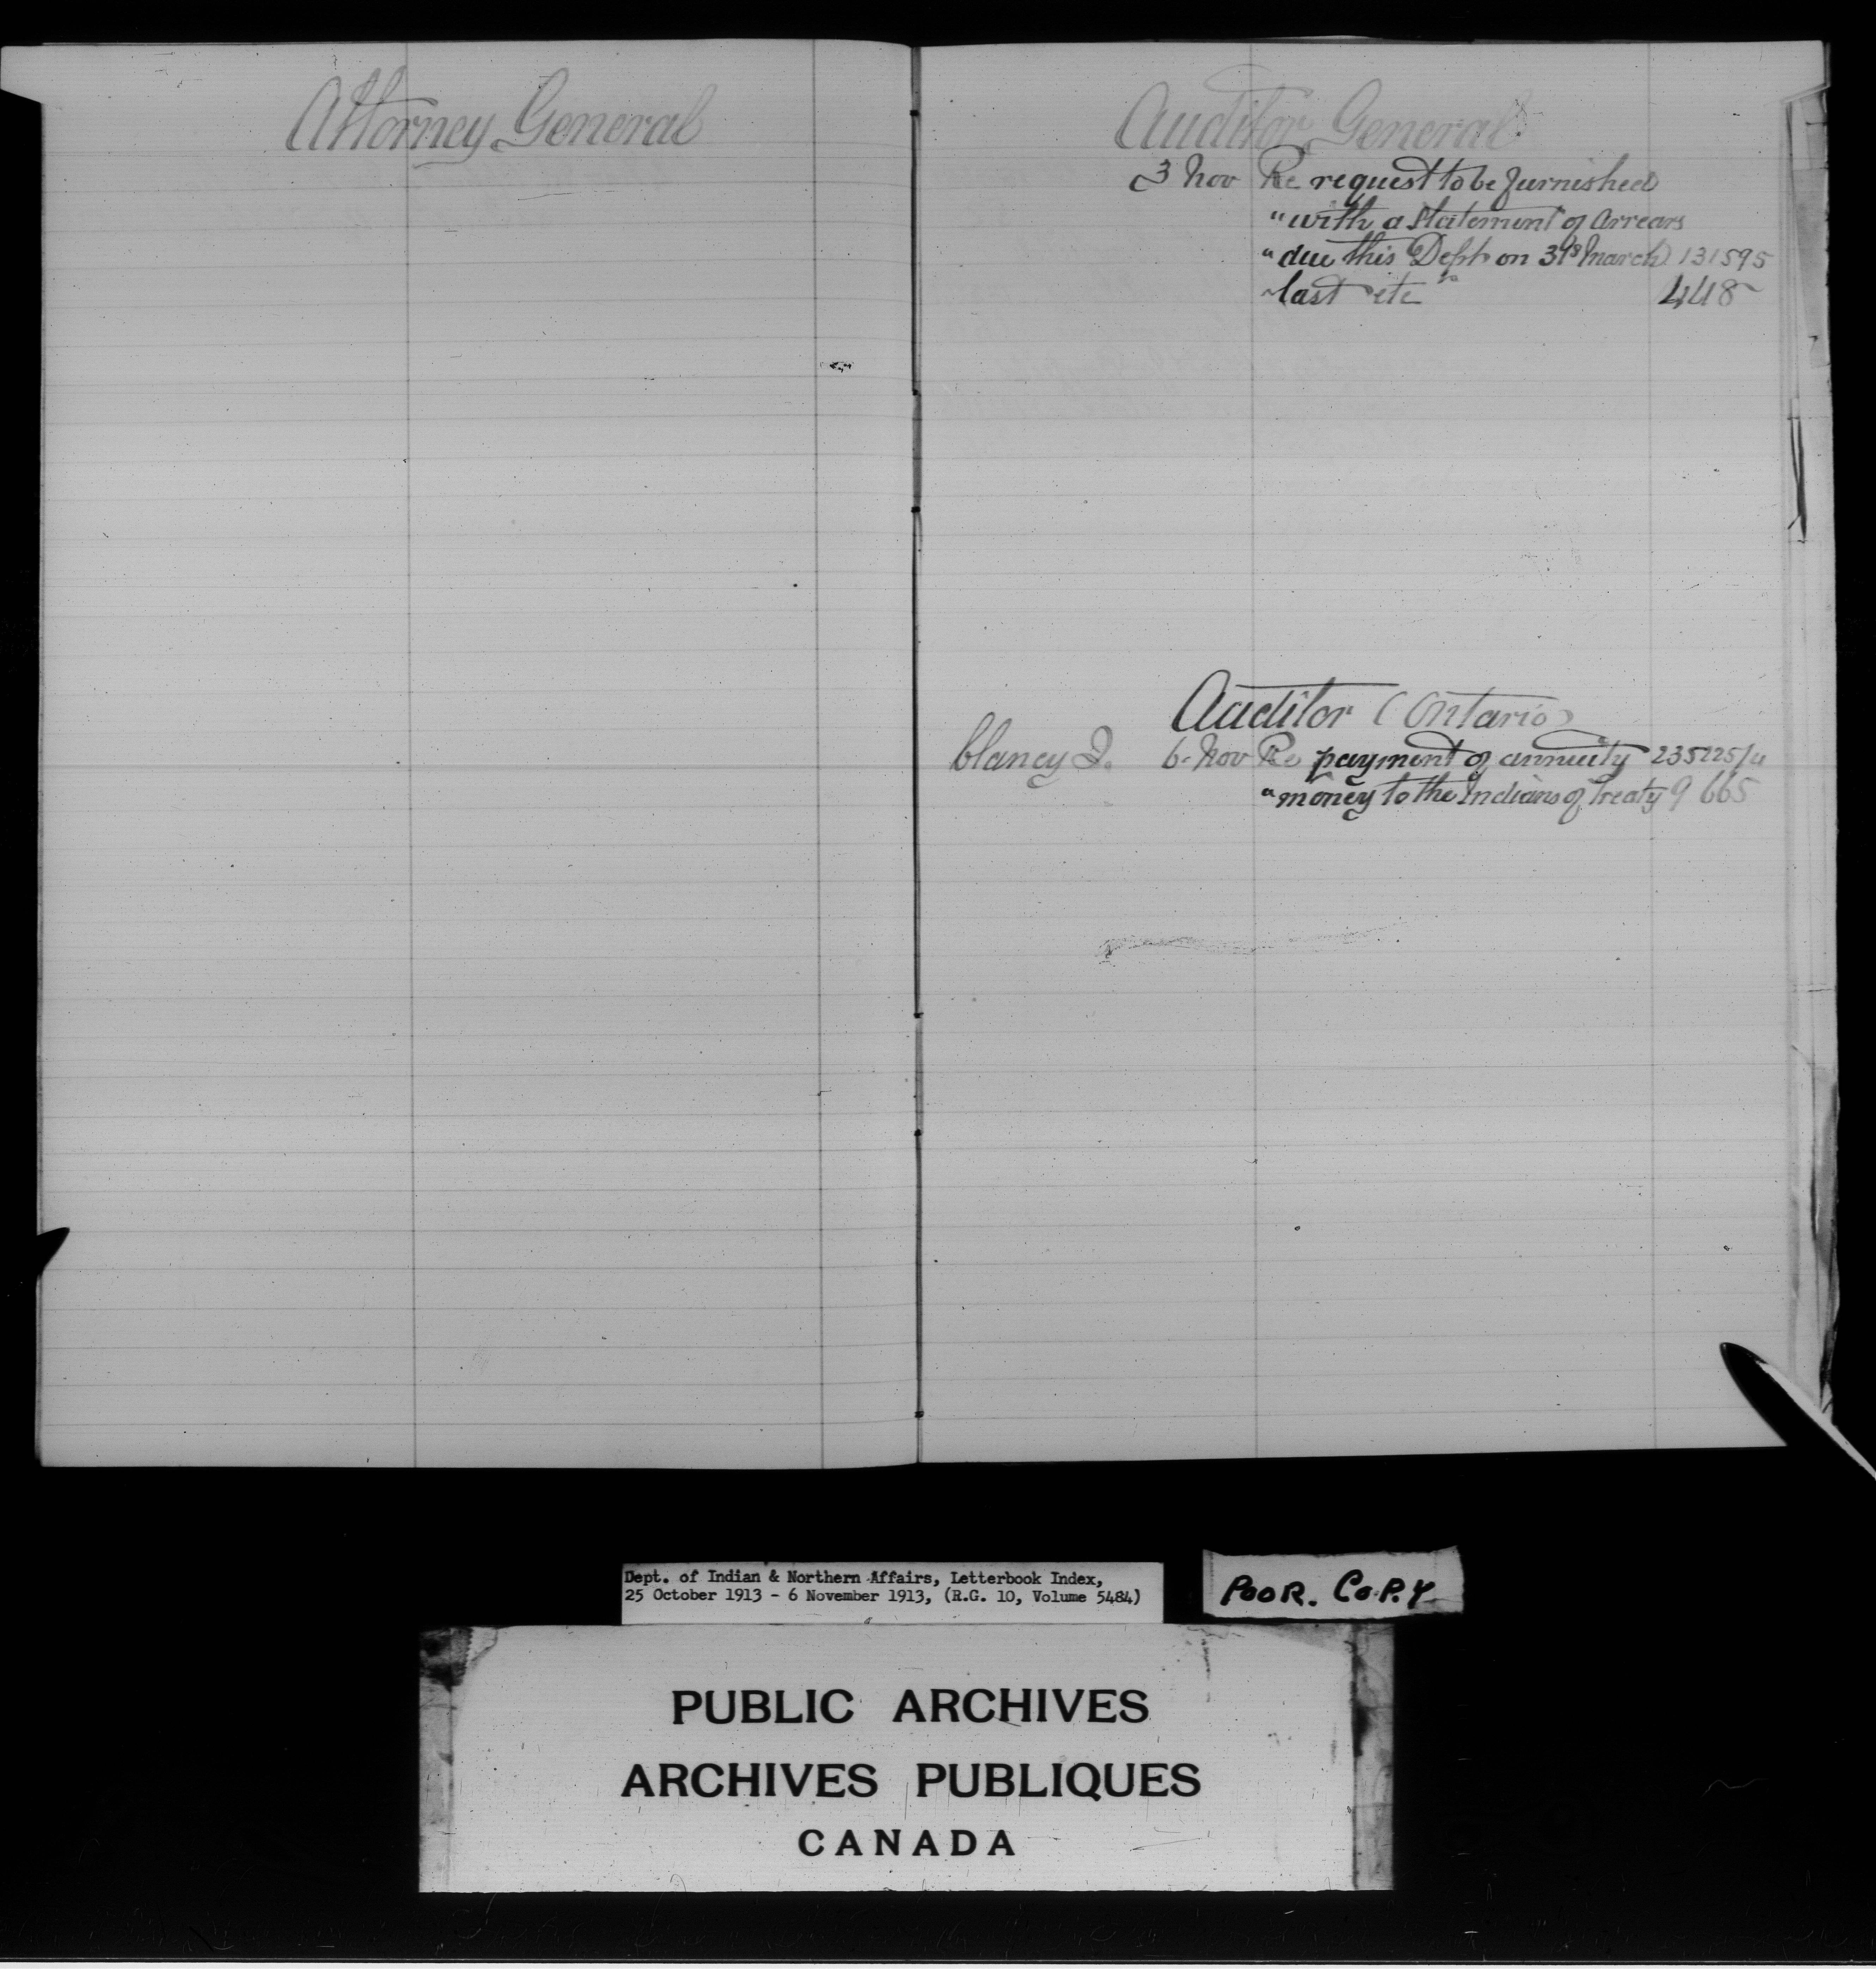 Attorney General
Auditor General
3 Nov Re request to be furnished
" with a statement of arrears
" due this Dept on 31st March 131595
last etc 448
Auditor (Ontario)
6 Nov Re payment of annuity 235225/4
" money to the Indians of Treaty 9 665
Dept. of Indian & Northern Affairs, Letterbook Index,
25 October 1913 - 6 November 1913, (R.G. 10, Volume 5484)
POOR. COPY
PUBLIC ARCHIVES
ARCHIVES PUBLIQUES
CANADA